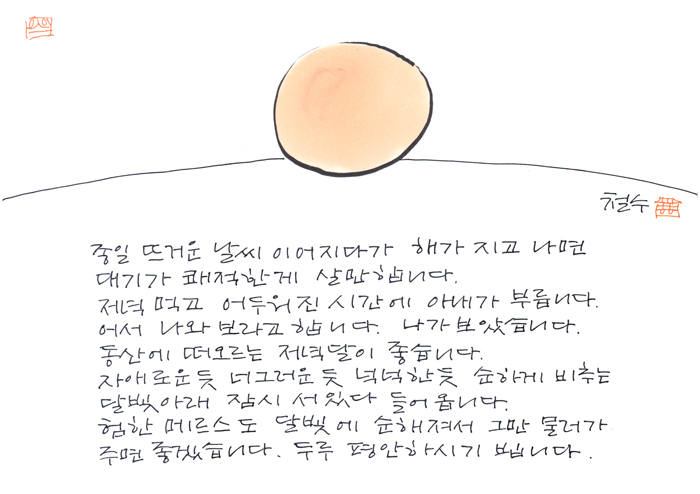 철수
종일 뜨거운 날씨 이어지다가 해가 지고 나면
대기가 쾌적한게 살만합니다.
저녁 먹고 어두워진 시간에 아내가 부릅니다.
어서 나와 보라고 합니다. 나가보았습니다.
동산에 떠오르는 저녁달이 좋습니다.
자애로운듯 너그러운듯 넉넉한듯 순하게 비추는
달빛아래 잠시 서있다 들어 옵니다.
험한 메르스도 달빛에 순해져서 그만 물러가
주면 좋겠습니다. 두루 평안하시기 빕니다.